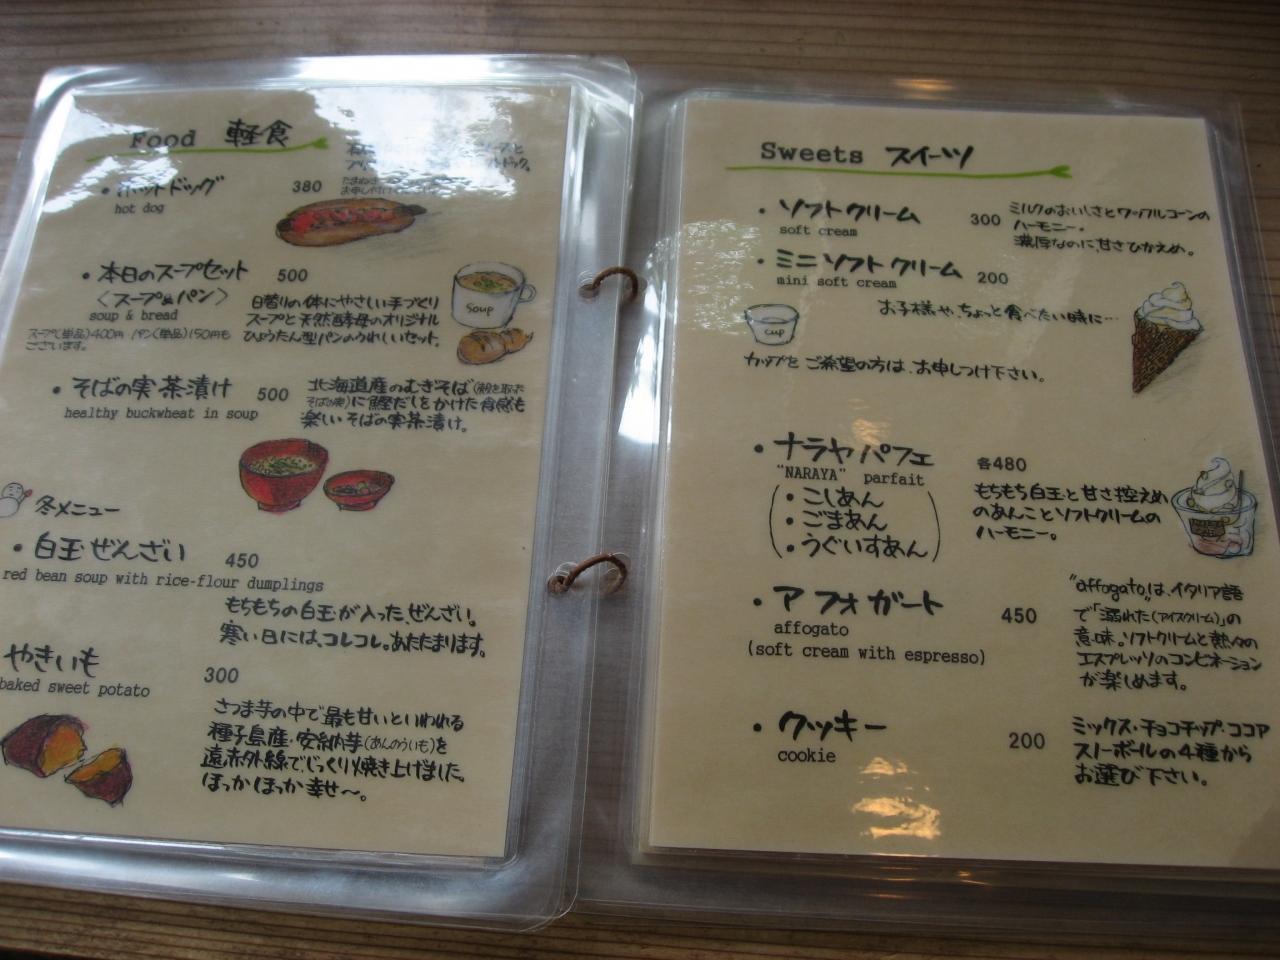 Food 軽食
ホットドッグ 380
hot dog
本日のスープセット 500
〈スープ&パン〉
soup & bread
日替りの体にやさしい手づくり
スープと天然酵母のオリジナル
ひょうたん型パンのうれしいセット。
スープ(単品)400円 パン(単品)150円も
ございます。
Soup
そばの実茶漬け 500
healthy buckwheat in soup
北海道産のむきそば(殻を取った
そばの実)に鰹だしをかけた食感も
楽しいそばの実茶漬け。
冬メニュー
白玉ぜんざい 450
red bean soup with rice-flour dumplings
もちもちの白玉が入った、ぜんざい。
寒い日には、コレコレ。あたたまります。
やきいも 300
baked sweet potato
さつま芋の中で最も甘いといわれる
種子島産・安納芋(あんのういも)を
遠赤外線でじっくり焼き上げました。
ほっかほっか幸せ〜。
Sweets スイーツ
ソフトクリーム 300
soft cream
ミルクのおいしさとワッフルコーンの
ハーモニー。
濃厚なのに、甘さひかえめ。
ミニソフトクリーム 200
mini soft cream
お子様や、ちょっと食べたい時に…
cup
カップをご希望の方は、お申しつけ下さい。
ナラヤパフェ 各480
"NARAYA" parfait
・こしあん
・ごまあん
・うぐいすあん
もちもち白玉と甘さ控えめ
のあんことソフトクリームの
ハーモニー。
アフォガート 450
affogato
(soft cream with espresso)
"affogato"は、イタリア語
で「溺れた(アイスクリーム)」の
意味。ソフトクリームと熱々の
エスプレッソのコンビネーション
が楽しめます。
クッキー 200
cookie
ミックス・チョコチップ・ココア
スノーボールの4種から
お選び下さい。